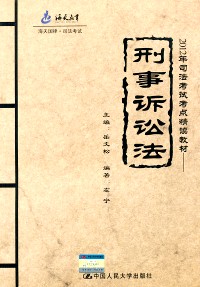 海天教育
海天法律·司法考试
2012年司法考试考点精读教材
刑事诉讼法
主编 岳文松 编著 左宁
中国人民大学出版社